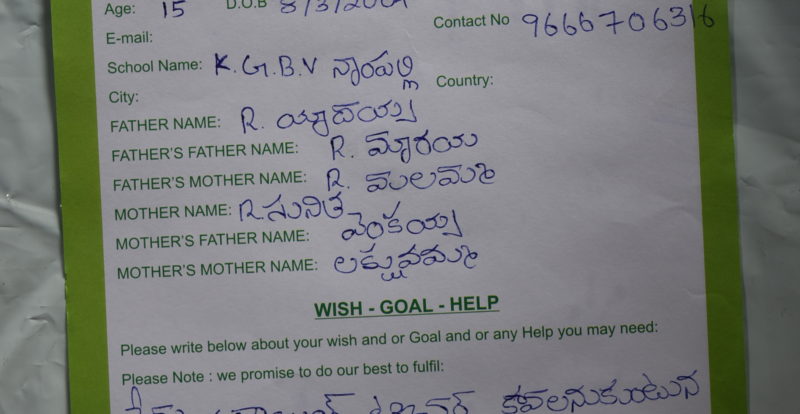 Age: 15 D.O.B 8/3/2001
Contact No 9666706316
E-mail:
School Name: K.G.B.V నాంపల్లి
City: Country:
FATHER NAME: R. యాదయ్య
FATHER'S FATHER NAME: R. మారయ
FATHER'S MOTHER NAME: R. మలమ్మ
MOTHER NAME: R. సునిత
MOTHER'S FATHER NAME: వెంకయ్య
MOTHER'S MOTHER NAME: లక్షువమ్మ
WISH - GOAL - HELP
Please write below about your wish and or Goal and or any Help you may need:
Please Note : we promise to do our best to fulfil:
కావలనుకుంటున